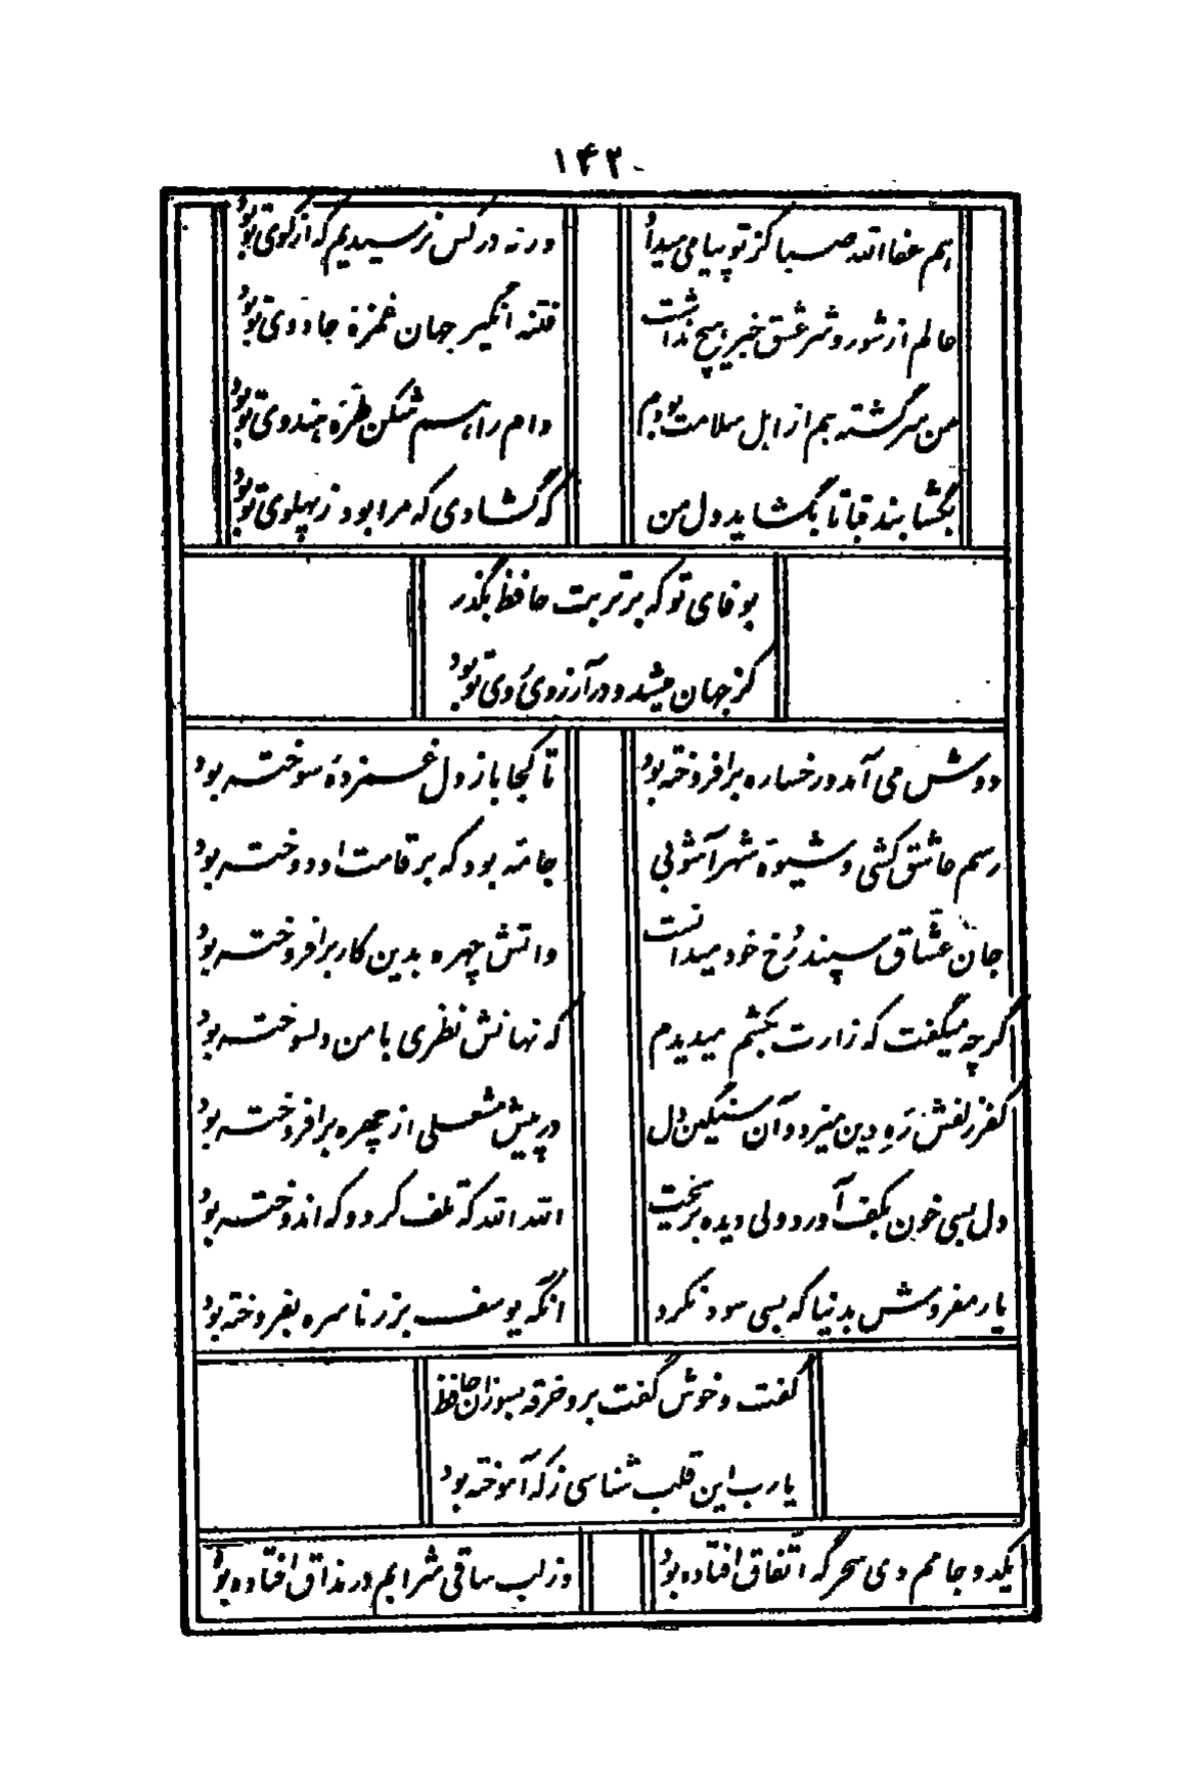 ۱۴۲
هم عفاالله صبا کز تو پیامی میداد
ورنه در کس نرسیدیم که از کوی تو بود
عالم از شور و شر عشق خبر هیچ نداشت
فتنه انگیز جهان غمزهٔ جادوی تو بود
من سرگشته هم از اهل سلامت بودم
دام راهم شکن طرهٔ هندوی تو بود
بگشا بند قبا تا بگشاید دل من
که گشادی که مرا بود ز پهلوی تو بود
بوفای تو که بر تربت حافظ بگذر
کز جهان میشد و در آرزوی روی تو بود
دوش می آمد و رخساره برافروخته بود
تا کجا باز دل غمزدهٔ سوخته بود
رسم عاشق کشی و شیوهٔ شهرآشوبی
جامهٔ بود که بر قامت او دوخته بود
جان عشاق سپند رخ خود میدانست
واتش چهره بدین کار برافروخته بود
گرچه میگفت که زارت بکشم میدیدم
که نهانش نظری با من دلسوخته بود
کفر زلفش ره دین میزد و آن سنگین دل
در پیش مشعلی از چهره برافروخته بود
دل بسی خون بکف آورد ولی دیده بریخت
الله الله که تلف کرد و که اندوخته بود
یار مفروش بدنیا که بسی سود نکرد
انکه یوسف بزر ناسره بفروخته بود
گفت و خوش گفت برو خرقه بسوزان حافظ
یارب این قلب شناسی ز که آموخته بود
یکدو جامم دی سحرگه اتفاق افتاده بود
وز لب ساقی شرابم در مذاق افتاده بود